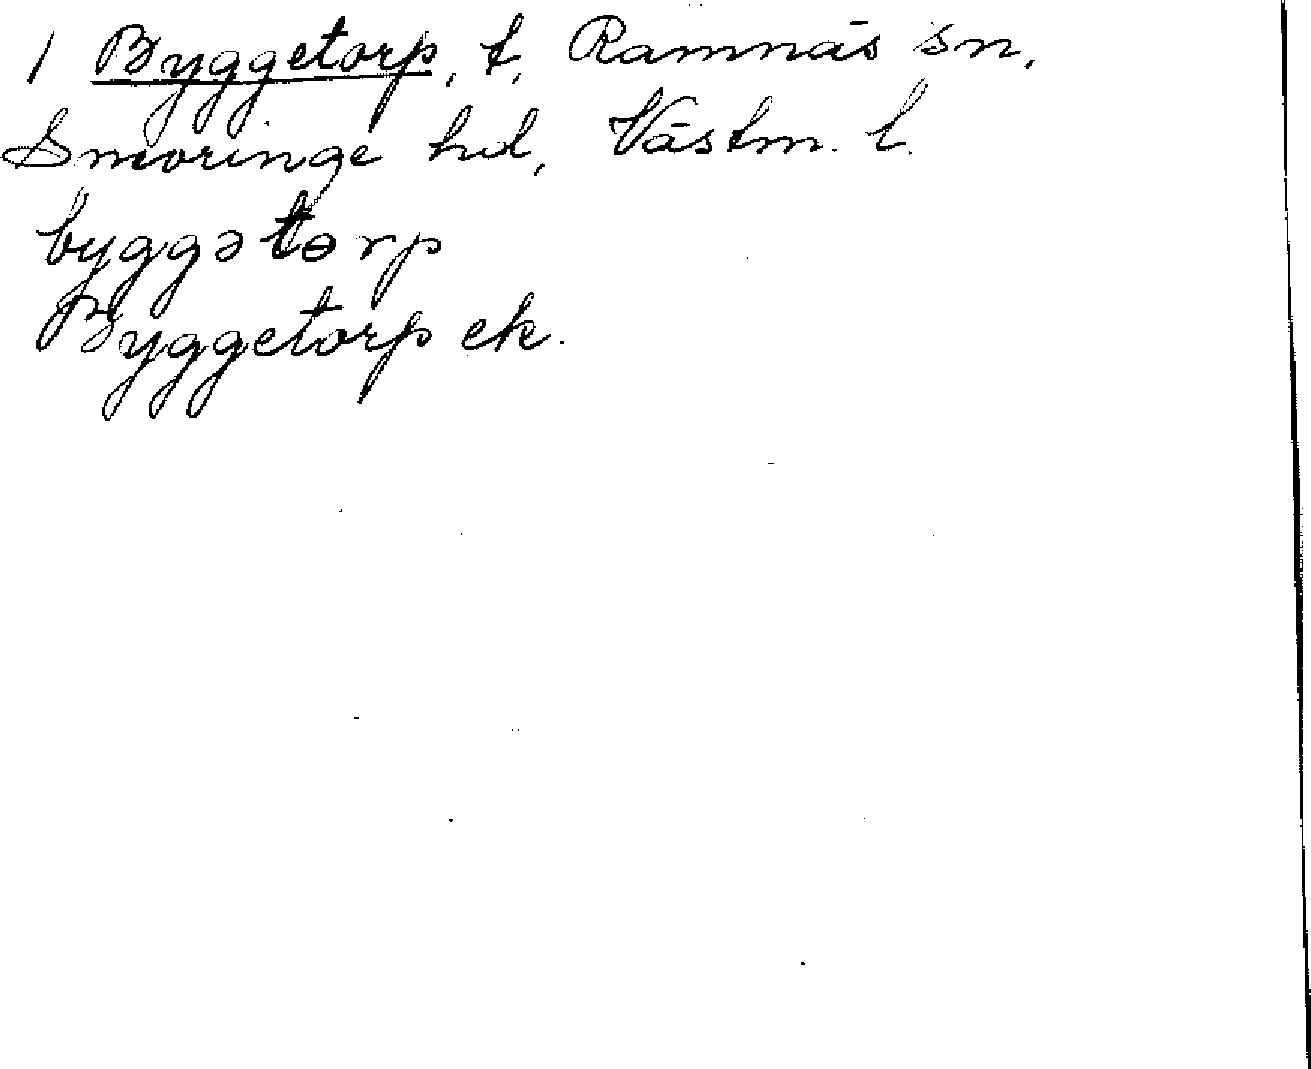 1 Byggetorp, t, Ramnäs sn,
Snevringe hd, Västm. l.
byggətɵrp
Byggetorp ek.